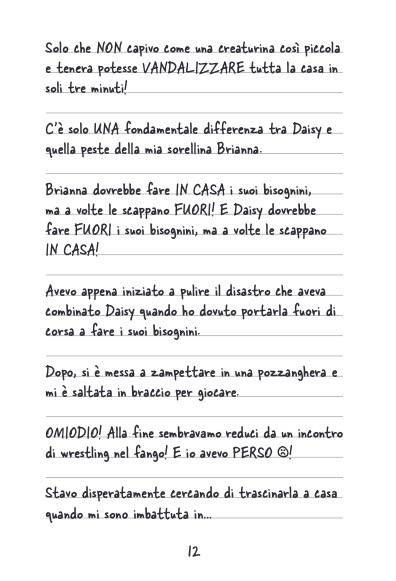 Solo che NON capivo come una creaturina così piccola
e tenera potesse VANDALIZZARE tutta la casa in
soli tre minuti!
C'è solo UNA fondamentale differenza tra Daisy e
quella peste della mia sorellina Brianna.
Brianna dovrebbe fare IN CASA i suoi bisognini,
ma a volte le scappano FUORI! E Daisy dovrebbe
fare FUORI i suoi bisognini, ma a volte le scappano
IN CASA!
Avevo appena iniziato a pulire il disastro che aveva
combinato Daisy quando ho dovuto portarla fuori di
corsa a fare i suoi bisognini.
Dopo, si è messa a zampettare in una pozzanghera e
mi è saltata in braccio per giocare.
OMIODIO! Alla fine sembravamo reduci da un incontro
di wrestling nel fango! E io avevo PERSO ☹!
Stavo disperatamente cercando di trascinarla a casa
quando mi sono imbattuta in...
12